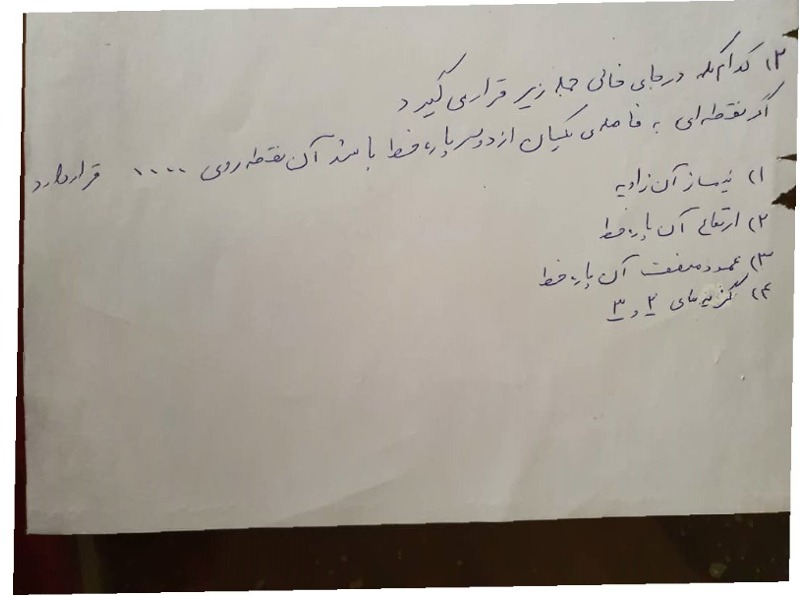 ۳) کدام کلمه در جای خالی جمله زیر قرار می گیرد
اگر نقطه ای به فاصله ی یکسان از دو سر پاره خط باشد آن نقطه روی .... قرار دارد
۱) نیمساز آن زاویه
۲) ارتفاع آن پاره خط
۳) عمود منصف آن پاره خط
۴) گزینه های ۲ و ۳